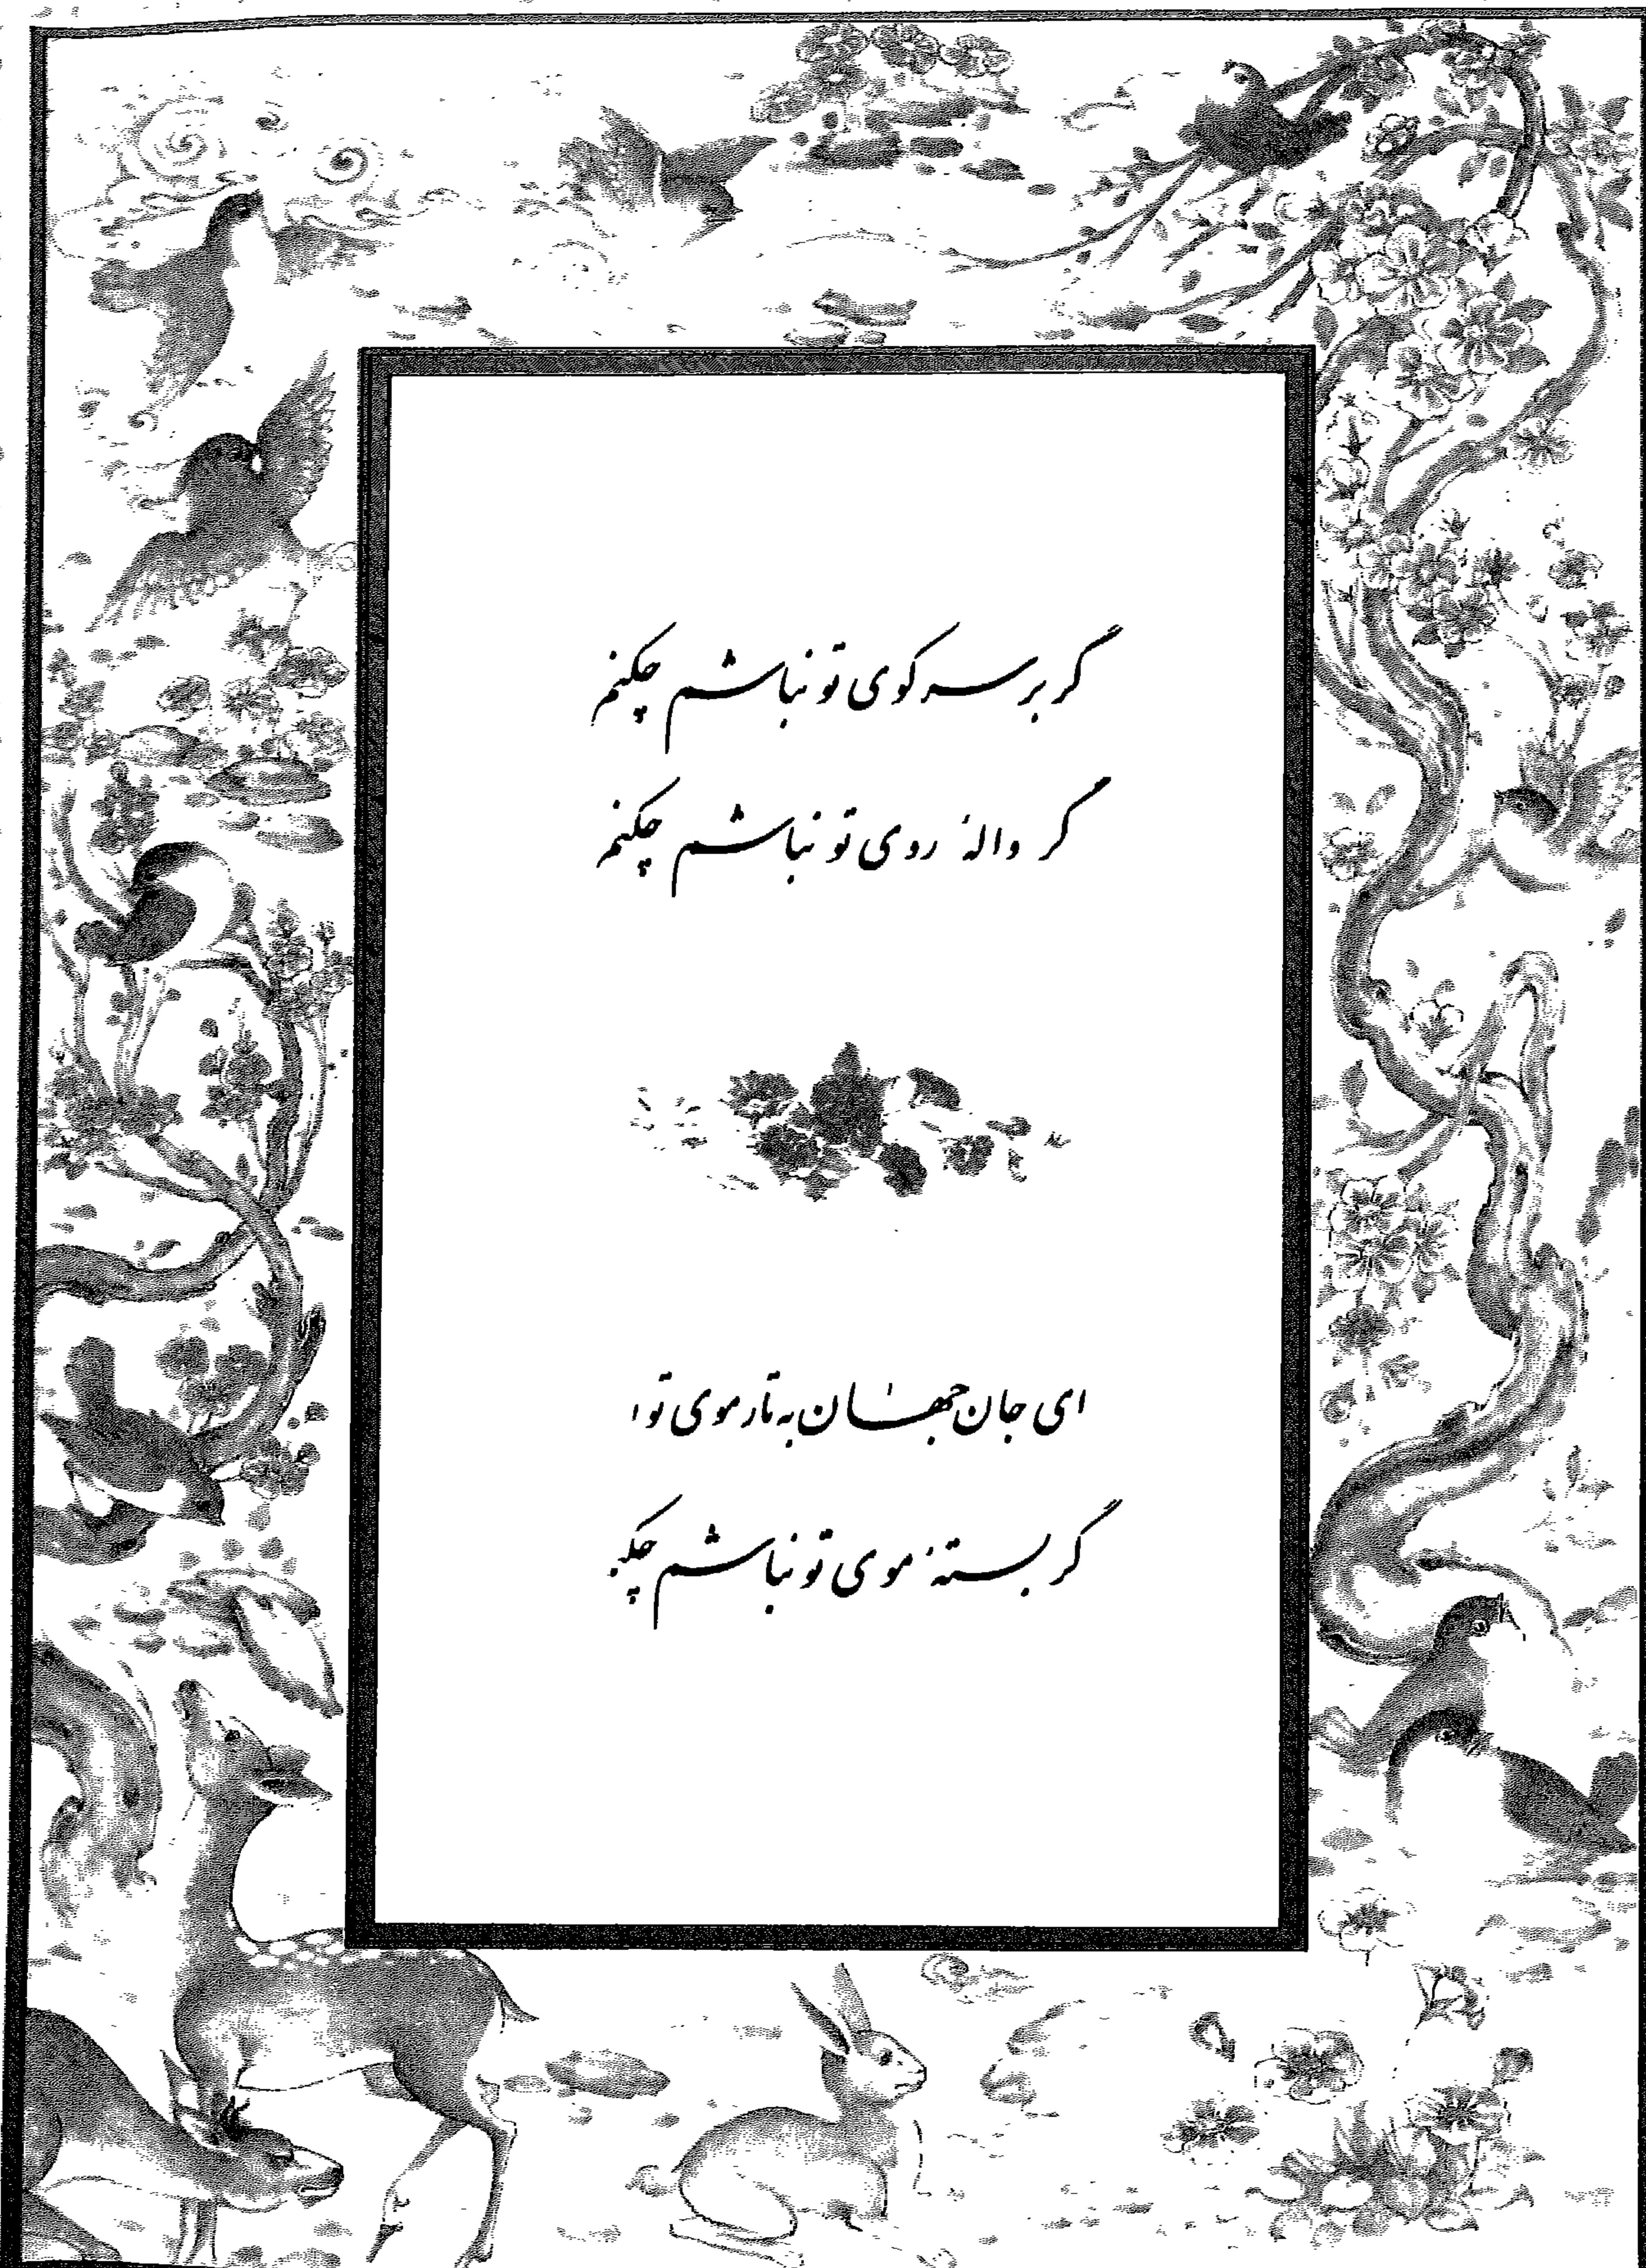 گر بر سر کوی تو نباشم چکنم
گر واله روی تو نباشم چکنم
ای جان جهان به تار موی تو
گر بسته موی تو نباشم